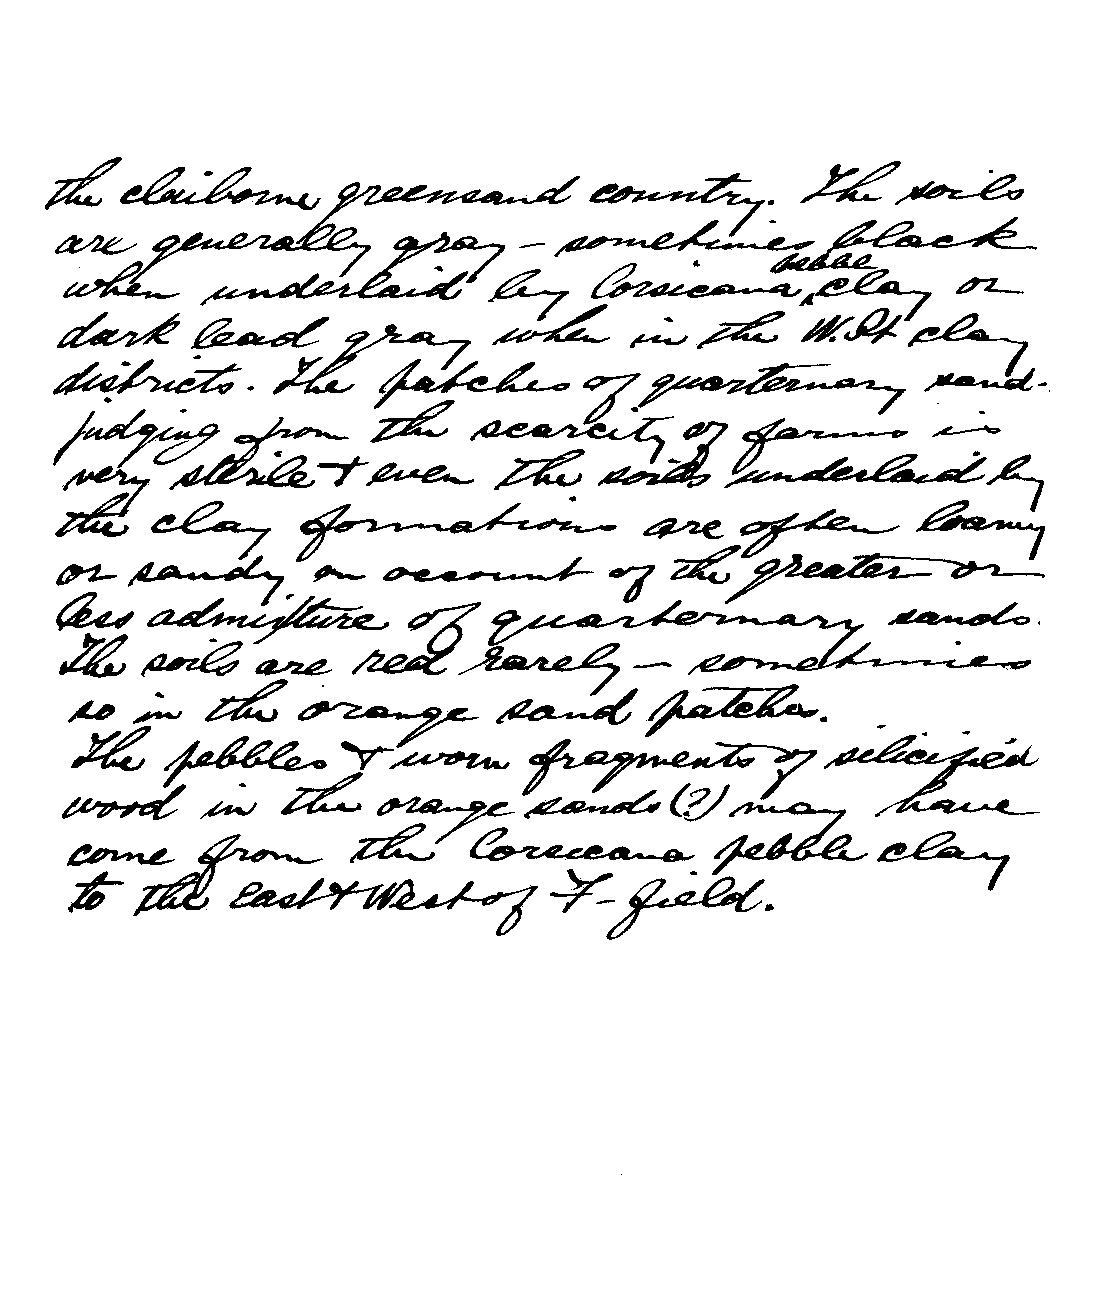 the claiborne greensand country. The soils
are generally gray - sometimes black
when underlaid by Corsicana pebble clay or
dark lead gray when in the W. Pt clay
districts. The patches of quarternary sand -
judging from the scarcity of farms is
very sterile & even the soils underlaid by
the clay formations are often loamy
or sandy on account of the greater or
less admixture of quarternary sands.
The soils are red rarely - sometimes
so in the orange sand patches.
The pebbles & worn fragments of silicified
wood in the orange sands (?) may have
come from the Corsicana pebble clay
to the East & West of F - field.